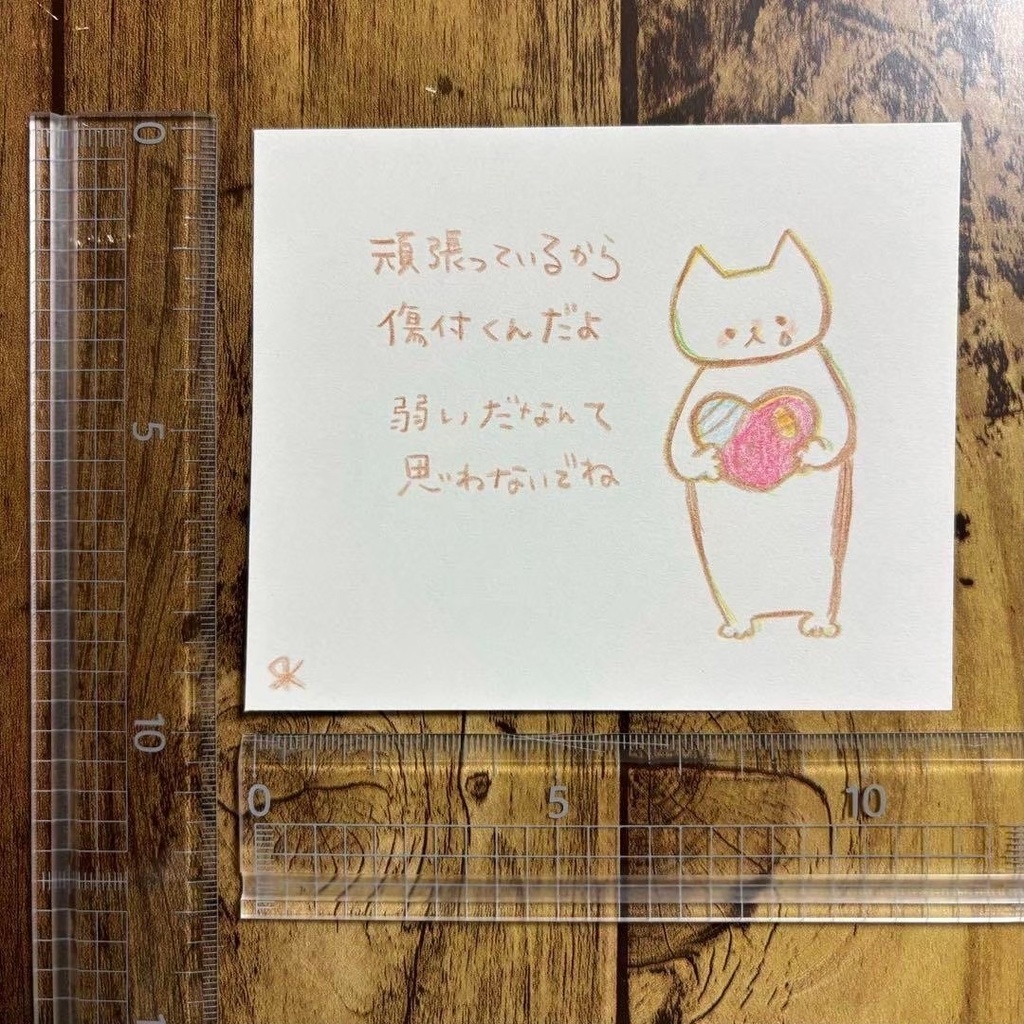 頑張っているから
傷付くんだよ
弱いだなんて
思わないでね
0
5
10
0
5
10